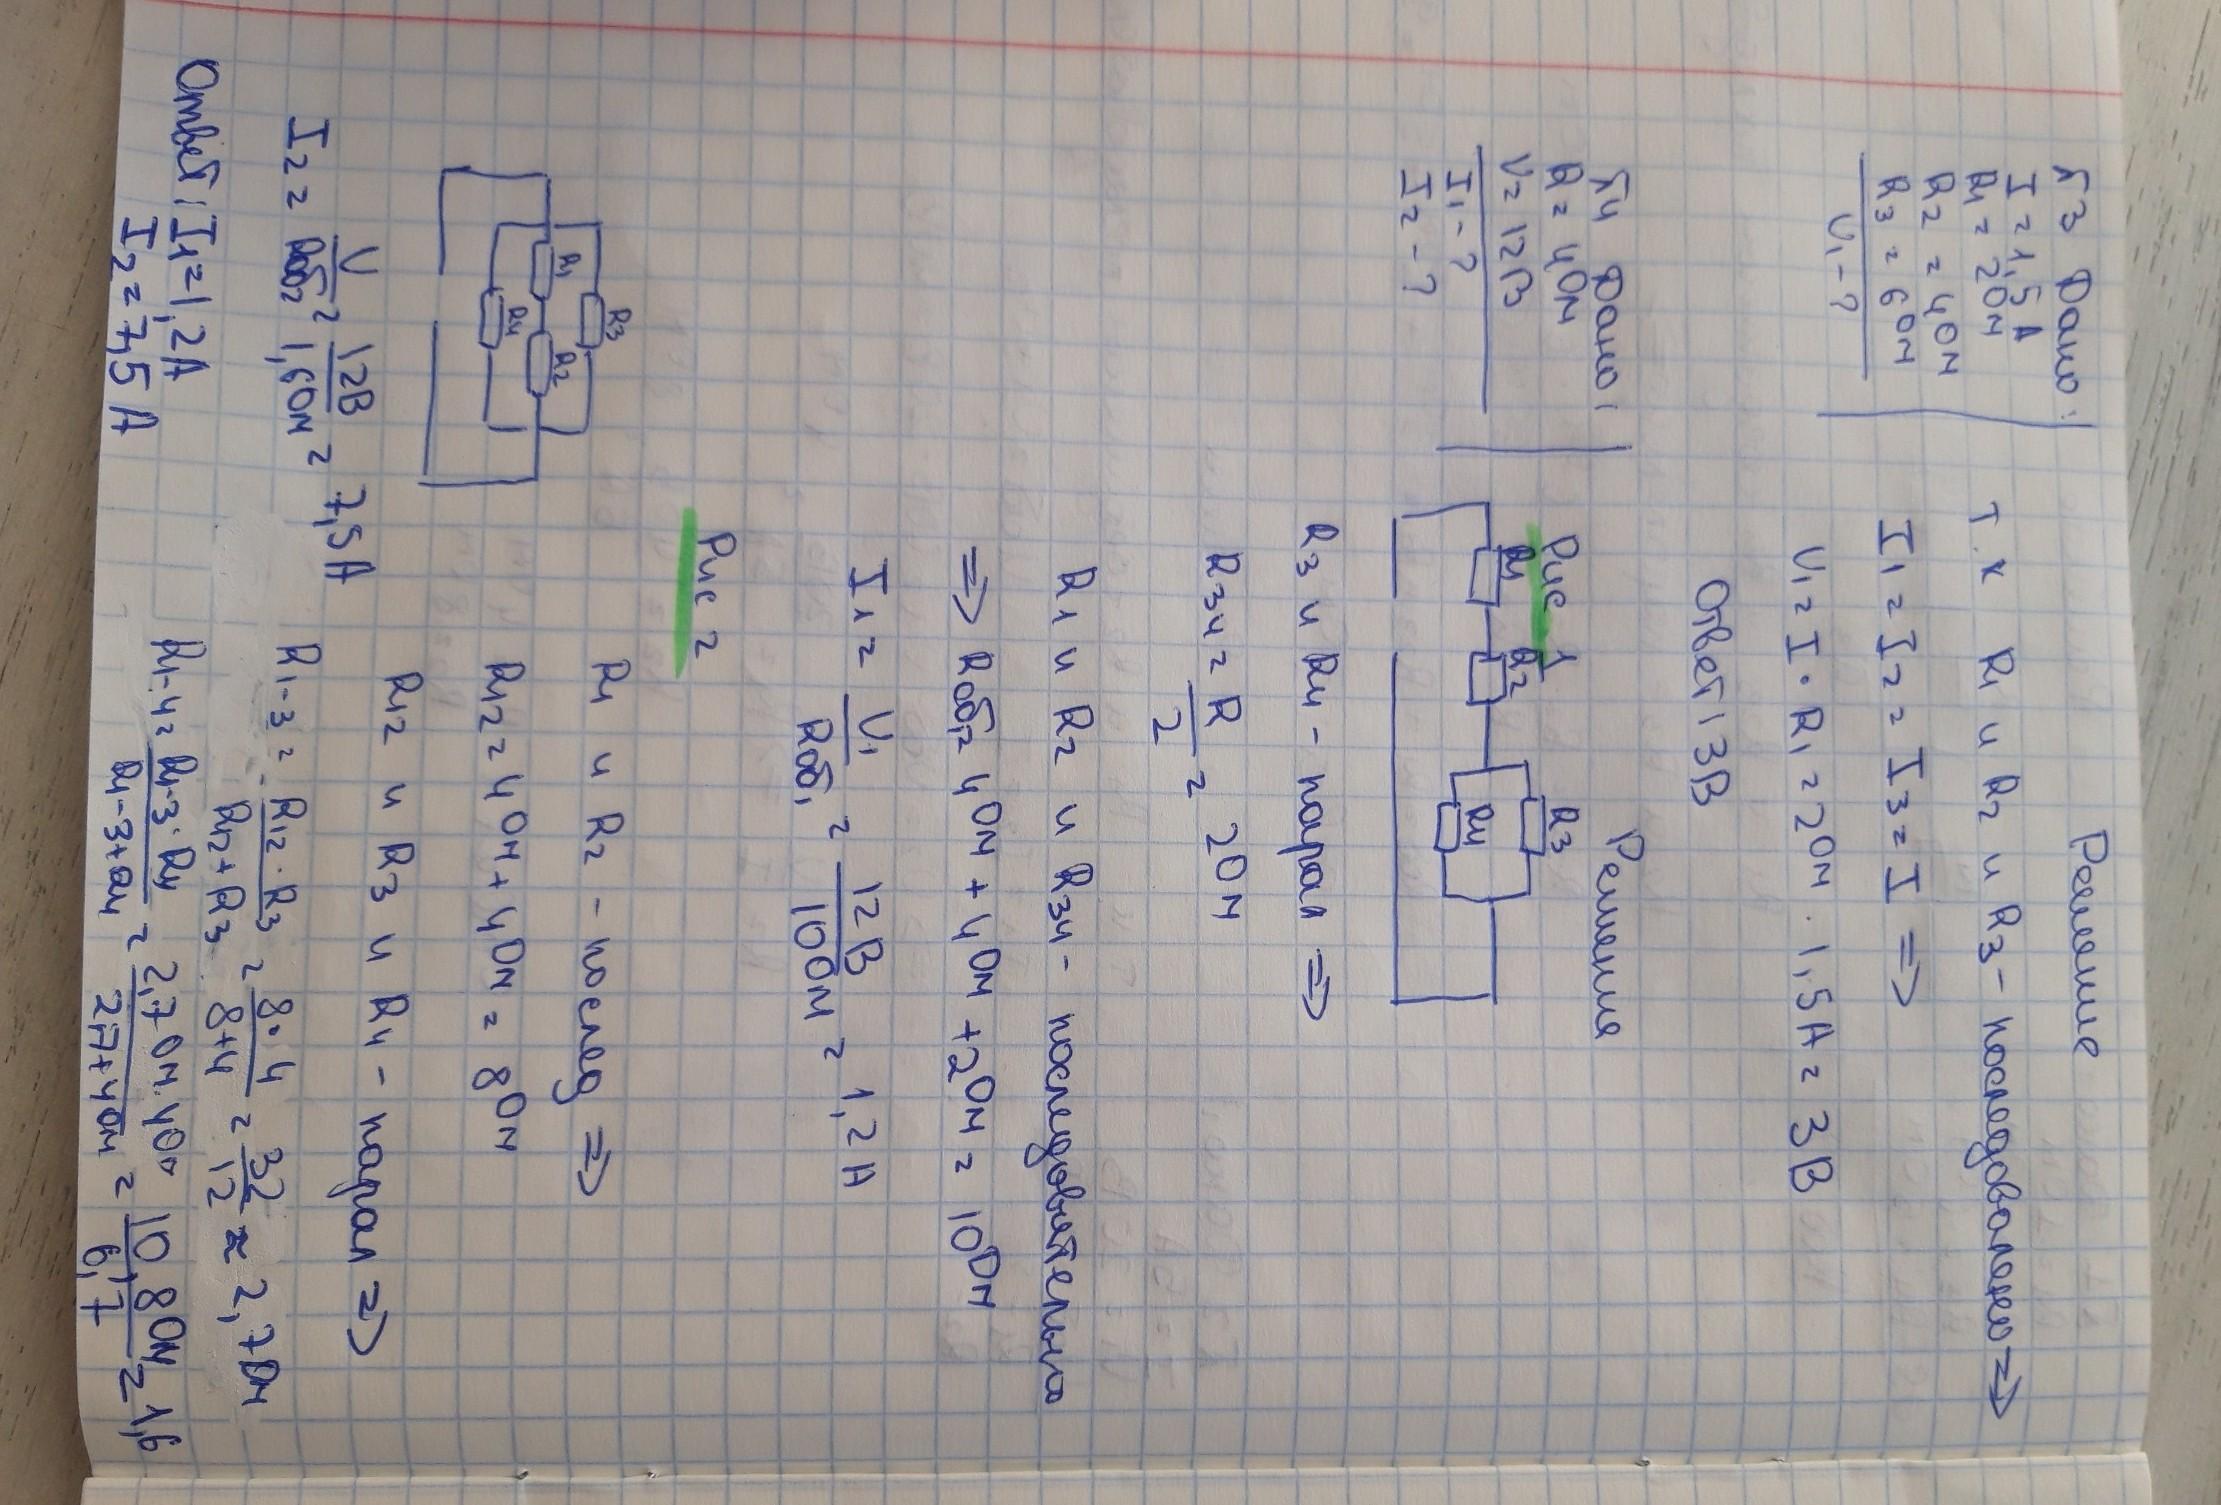 г3 Дано: Решение
I = 1,5 А
R1 = 2 Ом
R2 = 4 Ом
R3 = 6 Ом
U1 - ?
Т.к R1 и R2 и R3 - последовательно =>
I1 = I2 = I3 = I =>
U1 = I · R1 = 2 Ом · 1,5 А = 3 В
Ответ: 3 В
г4 Дано: Решение
R = 4 Ом
U = 12 В
I1 - ?
I2 - ?
Рис 1
R1 R2 R3 R4
R3 и R4 - парал =>
R34 = R/2 = 2 Ом
R1 и R2 и R34 - последовательно
=> Rоб1 = 4 Ом + 4 Ом + 2 Ом = 10 Ом
I1 = U1/Rоб1 = 12 В/10 Ом = 1,2 А
Рис 2
R3
R1 R2
R4
R1 и R2 - послед =>
R12 = 4 Ом + 4 Ом = 8 Ом
R12 и R3 и R4 - парал =>
R1-3 = R12 · R3/R12 + R3 = 8 · 4/8+4 = 32/12 ≈ 2,7 Ом
R1-4 = R1-3 · R4/R1-3+R4 = 2,7 Ом · 4 Ом/2,7+4 Ом = 10,8 Ом/6,7 = 1,6
I2 = U/Rоб2 = 12 В/1,6 Ом = 7,5 А
Ответ: I1 = 1,2 А
I2 = 7,5 А